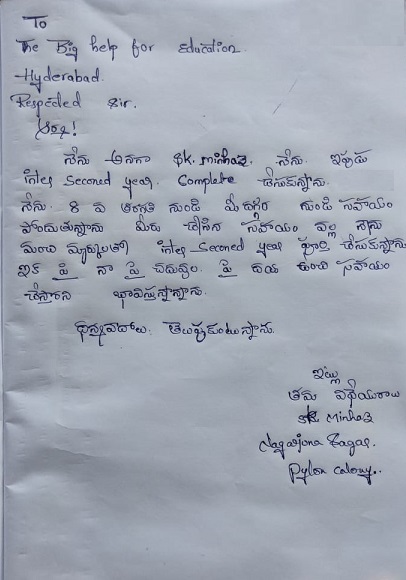 To
The Big help for Education.
Hyderabad.
Respected Sir.
నేను అనగా Sk. Minhaz. నేను. ఇపుడు
inter Seconed year. Complete చేసుకున్నాను.
నేను. 8 వ తరగతి నుండి మీ దగ్గర నుండి సహాయం
పొందుతున్నాను మీరు చేసిన సహాయం వల్ల నాను
మంచి మార్కులతో inter Seconed year పూర్తి చేసుకున్నాను
ఇక పై నా పై చదువుల పై దయ ఉంచి సహాయం
చేస్తారని భావిస్తున్నాను.
ధన్యవాదాలు. తెలుపుకుంటున్నాను.
ఇట్లు
తమ విధేయురాలు
SK Minhaz
Nagarjuna Sagar.
Pylon colony..